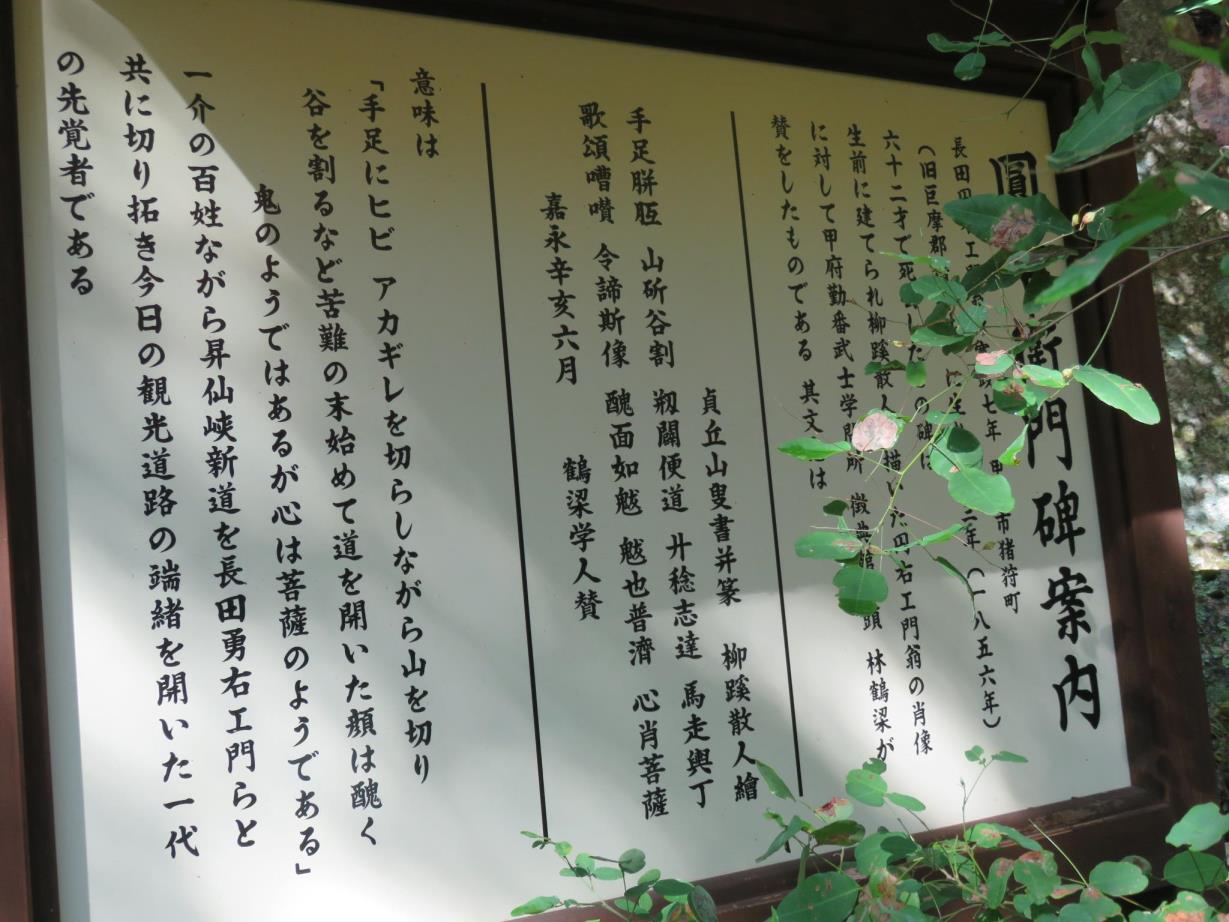 圓 門碑案内
長田 七年 市猪狩町
（旧巨摩郡 年（一八五六年）
六十二才で死 した の碑は 円右エ門翁の肖像
生前に建てられ柳蹊散人 描いた
に対して甲府勤番武士学問所 徴典館 頭 林鶴梁が
賛をしたものである 其文 は
貞丘山叟書并篆 柳蹊散人繪
手足胼胝 山斫谷割 剏闢便道 廾稔志達 馬走輿丁
歌頌嘈囋 令諦斯像 醜面如魃 魃也普濟 心肖菩薩
嘉永辛亥六月 鶴梁学人賛
意味は
「手足にヒビ アカギレを切らしながら山を切り
谷を割るなど苦難の末始めて道を開いた顔は醜く
鬼のようではあるが心は菩薩のようである」
一介の百姓ながら昇仙峡新道を長田勇右エ門らと
共に切り拓き今日の観光道路の端緒を開いた一代
の先覚者である